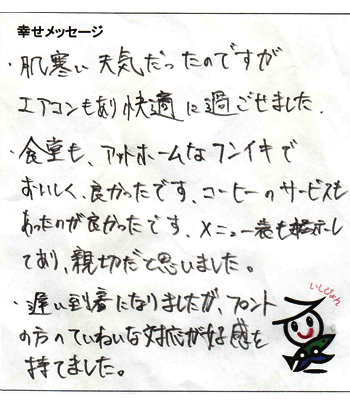 幸せメッセージ
・肌寒い天気だったのですが
エアコンもあり快適に過ごせました.
・食堂も、アットホームなフンイキで
おいしく、良かったです、コーヒーのサービスも
あったのが良かったです、メニュー表も掲示し
てあり、親切だと思いました。
・遅い到着になりましたが、フロント
の方のていねいな対応が好感を
持てました。
いしぴょん